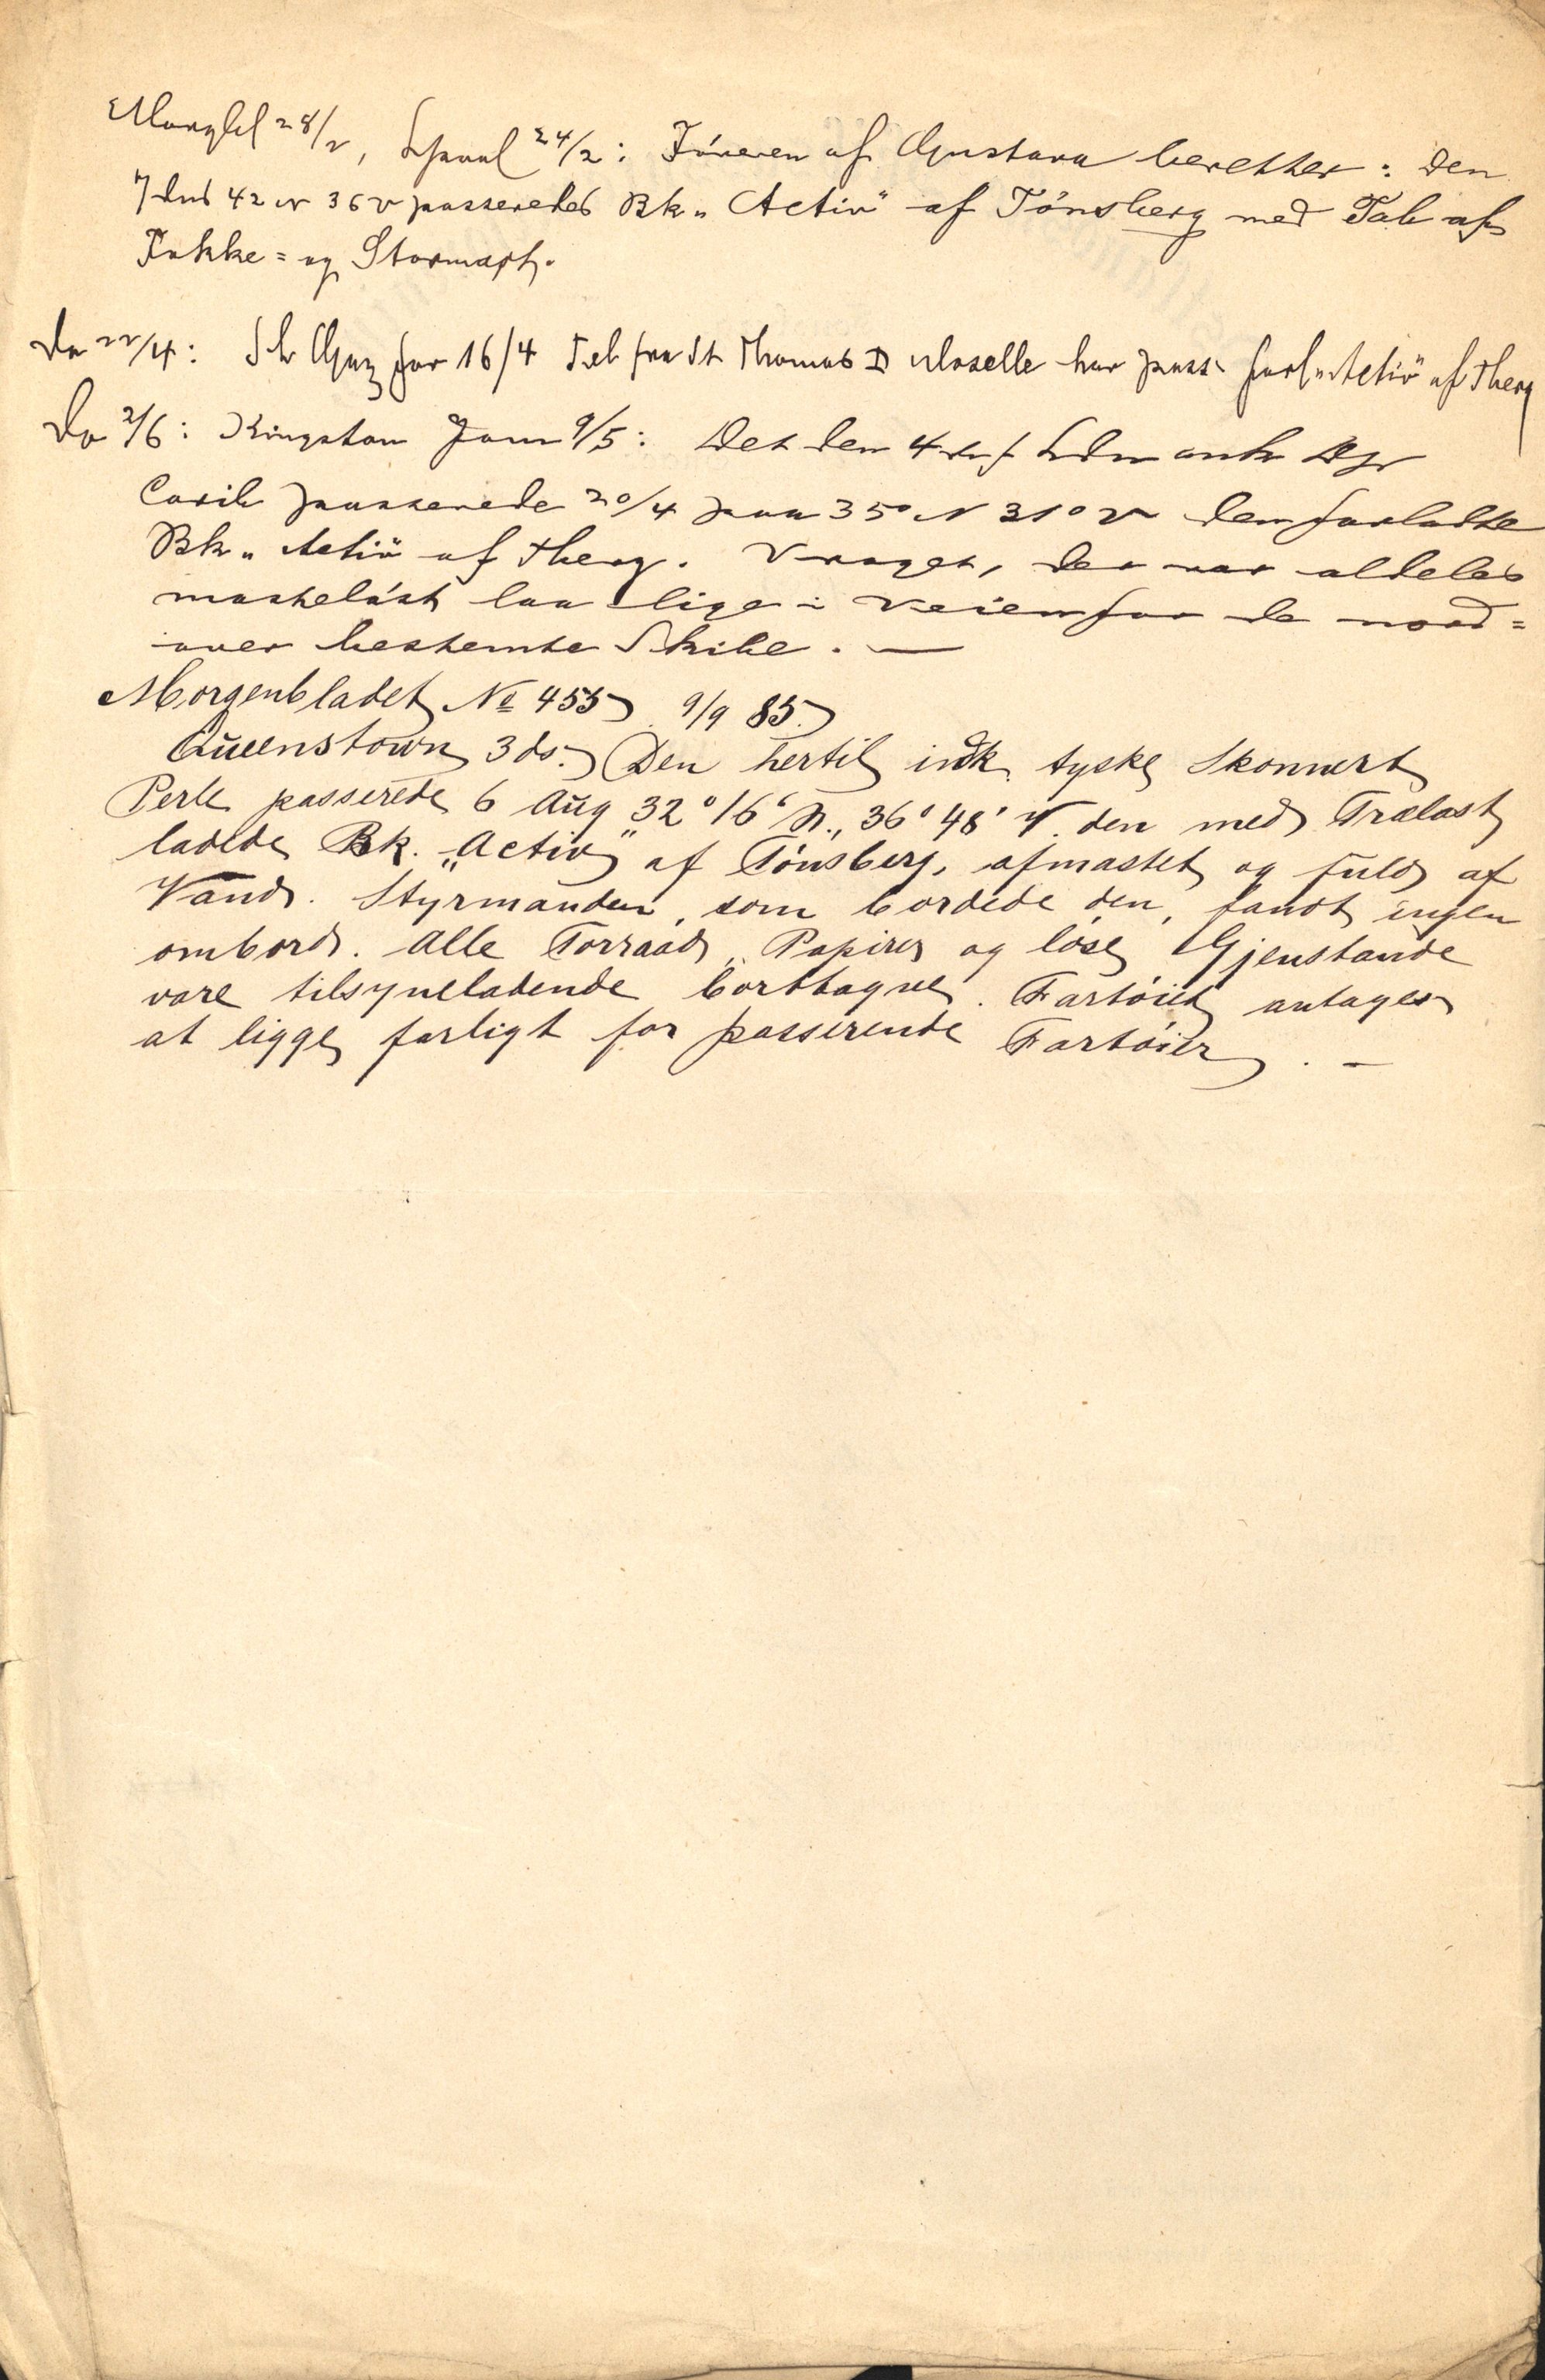 Morgbl 28/2, Lpool 24/2: Föreren af Gustava beretter: Den
7 dns 42 N 36 V passeredes Bk „Activ" af Tönsberg med Tab af
Fokke= og Stormast.
Do 22/4: Sh Gaz for 16/4 Tel fra St Thomas D Moselle har pass. forl „Activ" af Tberg
Do 2/6: Kingston Jam 9/5: Det den 4 ds f Ldn ank Dp
Carib passerede 20/4 paa 35° N 31° V den forladte
Bk „Activ" af Tberg. Vraget, der var aldeles
mastelöst laa lige i Veien for de nord=
over bestemte Skibe. —
Morgenbladet No 455 9/9 85.
Queenstown 3 ds. Den hertil indk. tyske Skonnert
Perle passerede 6 Aug 32° 16' N., 36° 48' V. den med Trælast
ladede Bk. „Activ" af Tönsberg, afmastet og fuld af
Vand. Styrmanden, som bordede den, fandt ingen
ombord. Alle Forraad, Papirer og löse Gjenstande
vare tilsyneladende borttagne. Fartöiet antages
at ligge farligt for passerende Fartöier. —